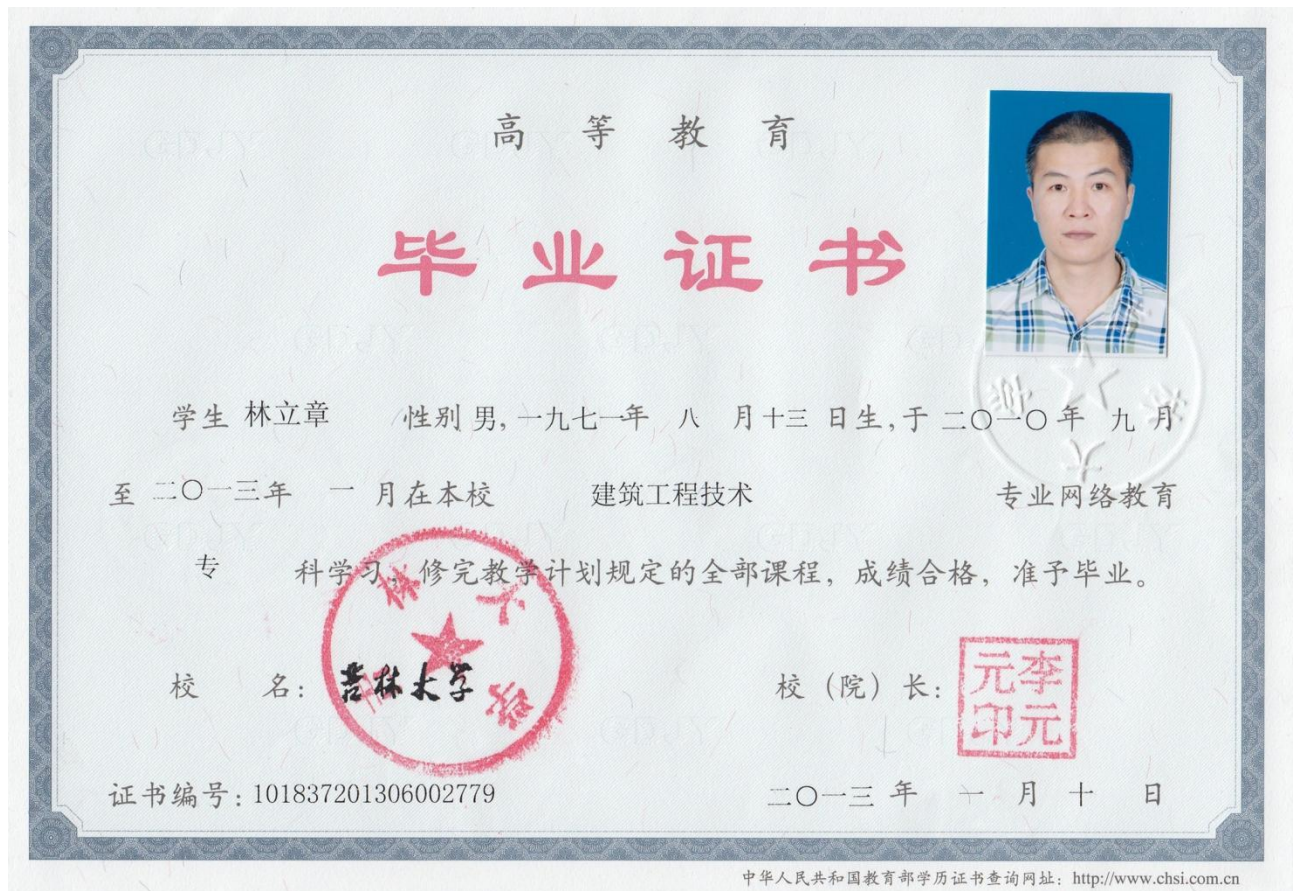 高等教育
毕业证书
学生 林立章 性别 男, 一九七一年 八 月十三 日生, 于 二〇一〇年 九 月
至 二〇一三年 一 月在本校 建筑工程技术 专业网络教育
专 科学习, 修完教学计划规定的全部课程, 成绩合格, 准予毕业。
校 名: 吉林大学 校 (院) 长: 李元元印
证书编号: 101837201306002779 二〇一三 年 一 月 十 日
中华人民共和国教育部学历证书查询网址: http://www.chsi.com.cn